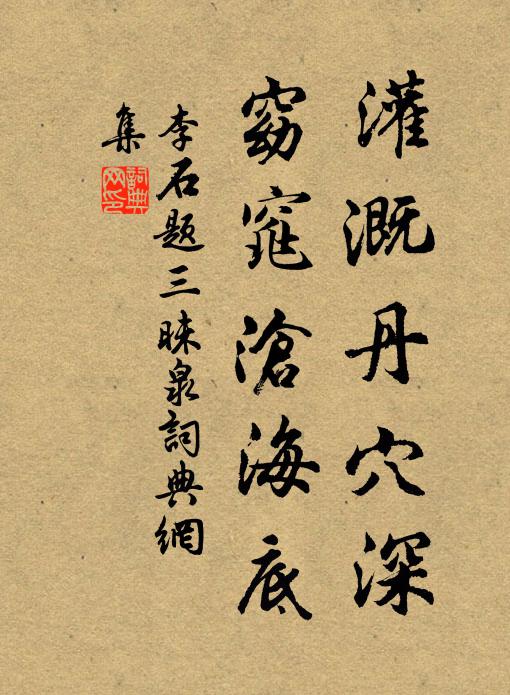 灌溉丹穴深
窈窕滄海底
李石題三昧泉詞典網
集
詞典網印